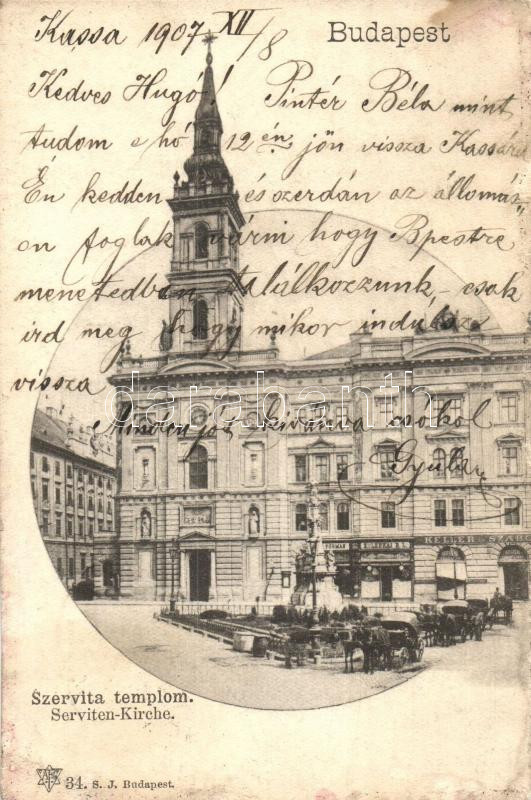 Kassa 1907 XII/8
Budapest
Kedves Hugó! Pintér Béla mint
tudom e hó 12 én jön vissza Kassára
Én kedden és szerdán az állomás-
on foglak várni hogy Bpestre
menetedben találkozzunk, csak
ird meg hogy mikor indulsz
vissza
darabanth
Minden jót kivánva csókol
Gyula
KELLER
Szervita templom.
Serviten-Kirche.
34. S. J. Budapest.